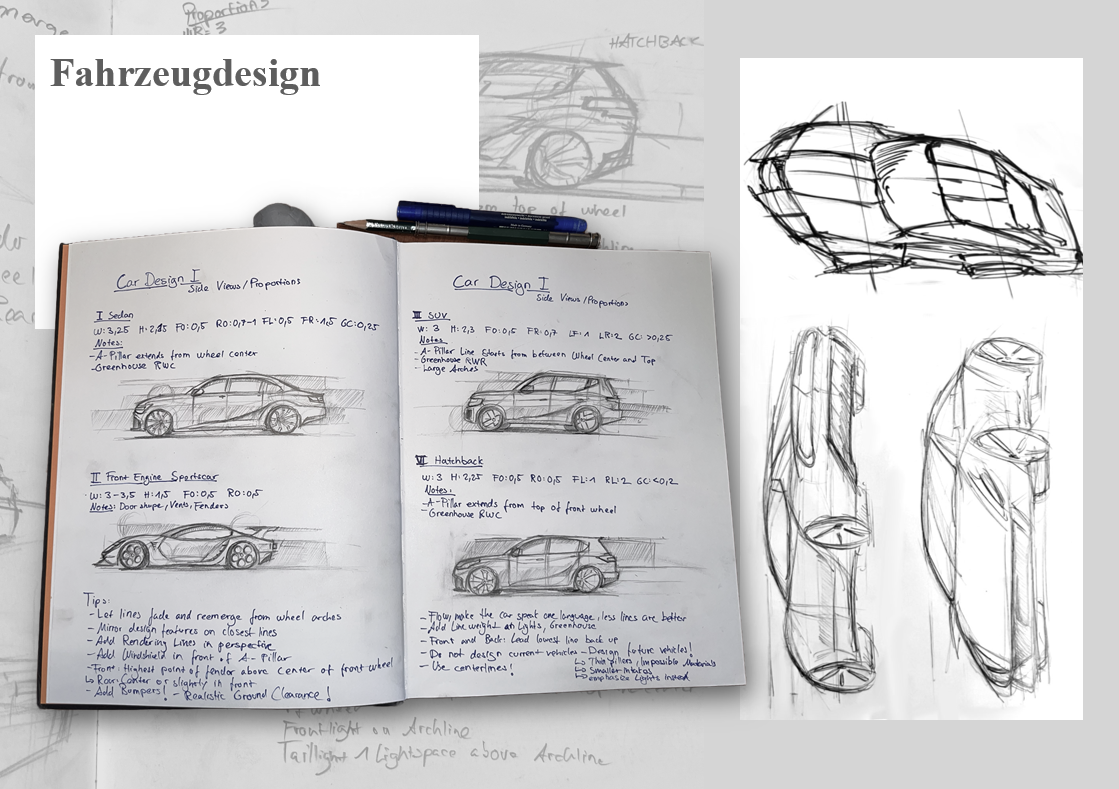 Proportions
WR: 3
HATCHBACK
Fahrzeugdesign
top of wheel
Car Design I
Side Views/Proportions
I Sedan
W: 3,25 H: 2,25 FO: 0,5 RO: 0,7-1 FL: 0,5 FR: 1,5 GC: 0,25
Notes:
- A-Pillar extends from wheel center
- Greenhouse RWC
II Front Engine Sportscar
W: 3-3,5 H: 1,5 FO: 0,5 RO: 0,5
Notes: Door shape, Vents, Fenders
Tips:
- Let lines fade and reemerge from wheel arches
- Mirror design features on closest lines
- Add Rendering Lines in perspective
- Add Windshield in front of A-Pillar
- Front: Highest point of fender above Center of front wheel
↳ Rear: Center or slightly in front
- Add Bumpers! - Realistic Ground Clearance!
Car Design I
Side Views/Proportions
III SUV
W: 3 H: 2,3 FO: 0,5 FR: 0,7 LF: 1 LR: 2 GC: >0,25
Notes
- A-Pillar Line Starts from between Wheel Center and Top
- Greenhouse RWR
- Large Arches
VI Hatchback
W: 3 H: 2,25 FO: 0,5 RO: 0,5 FL: 1 RL: 2 GC: <0,2
Notes:
- A-Pillar extends from top of front wheel
- Greenhouse RWC
- Flow, make the car speak one language, less lines are better
- Add Line weight on Lights, Greenhouse
- Front and Back: Lead lowest line back up
- Do not design current vehicles - Design future vehicles!
↳ Thin pillers, Impossible Materials
↳ Smaller Intakes
↳ emphasize Lights instead
- Use centerlines!
of wheel
Frontlight on Archline
Taillight 1 Lightspace above Archline